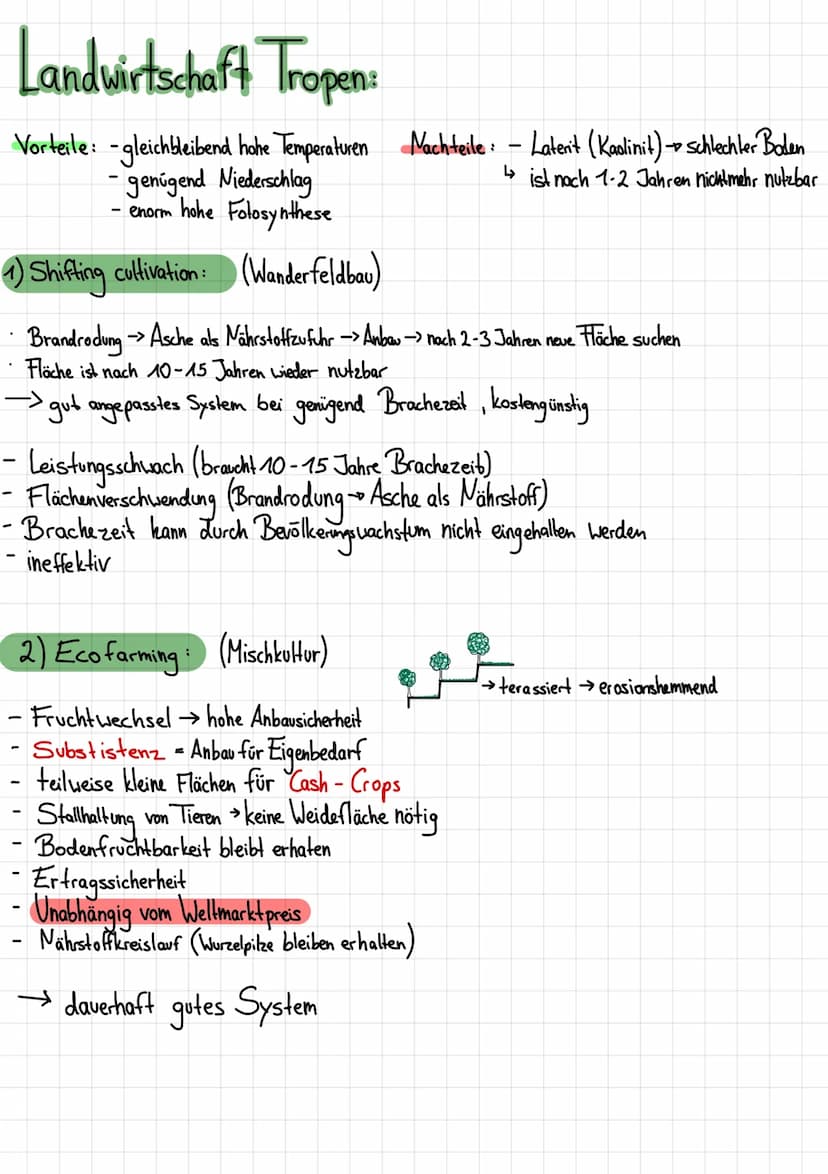 Landwirtschaft Tropen:
Vorteile: - gleichbleibend hohe Temperaturen
- genügend Niederschlag
- enorm hohe Fotosynthese
Nachteile: - Laterit (Kaolinit) → schlechter Boden
↳ ist nach 1-2 Jahren nichtmehr nutzbar
1) Shifting cultivation: (Wanderfeldbau)
· Brandrodung → Asche als Nährstoffzufuhr → Anbau → nach 2-3 Jahren neue Fläche suchen
· Fläche ist nach 10-15 Jahren wieder nutzbar
→ gut angepasstes System bei genügend Brachezeit, kostengünstig
- Leistungsschwach (braucht 10-15 Jahre Brachezeit)
- Flächenverschwendung (Brandrodung → Asche als Nährstoff)
- Brachezeit kann durch Bevölkerungswachstum nicht eingehalten werden
- ineffektiv
2) Ecofarming: (Mischkultur)
→ terassiert → erosionshemmend
- Fruchtwechsel → hohe Anbausicherheit
- Substistenz = Anbau für Eigenbedarf
- teilweise kleine Flächen für Cash-Crops
- Stallhaltung von Tieren → keine Weidefläche nötig
- Bodenfruchtbarkeit bleibt erhaten
- Ertragssicherheit
- Unabhängig vom Weltmarktpreis
- Nährstoffkreislauf (Wurzelpilze bleiben erhalten)
→ dauerhaft gutes System